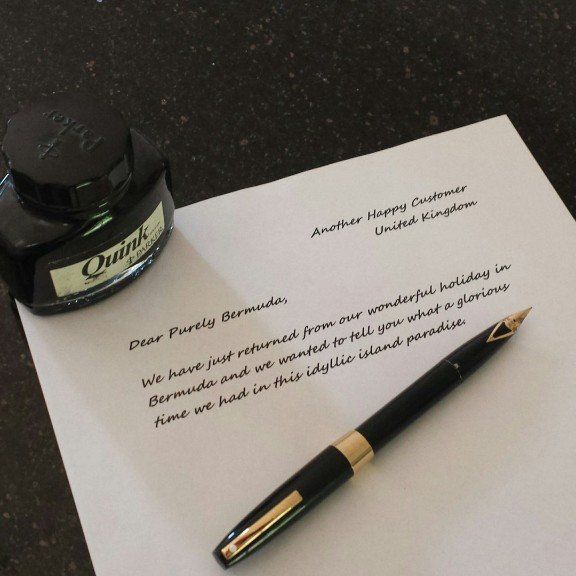 Parker
Quink
PARKER
Another Happy Customer
United Kingdom
Dear Purely Bermuda,
We have just returned from our wonderful holiday in
Bermuda and we wanted to tell you what a glorious
time we had in this idyllic island paradise.